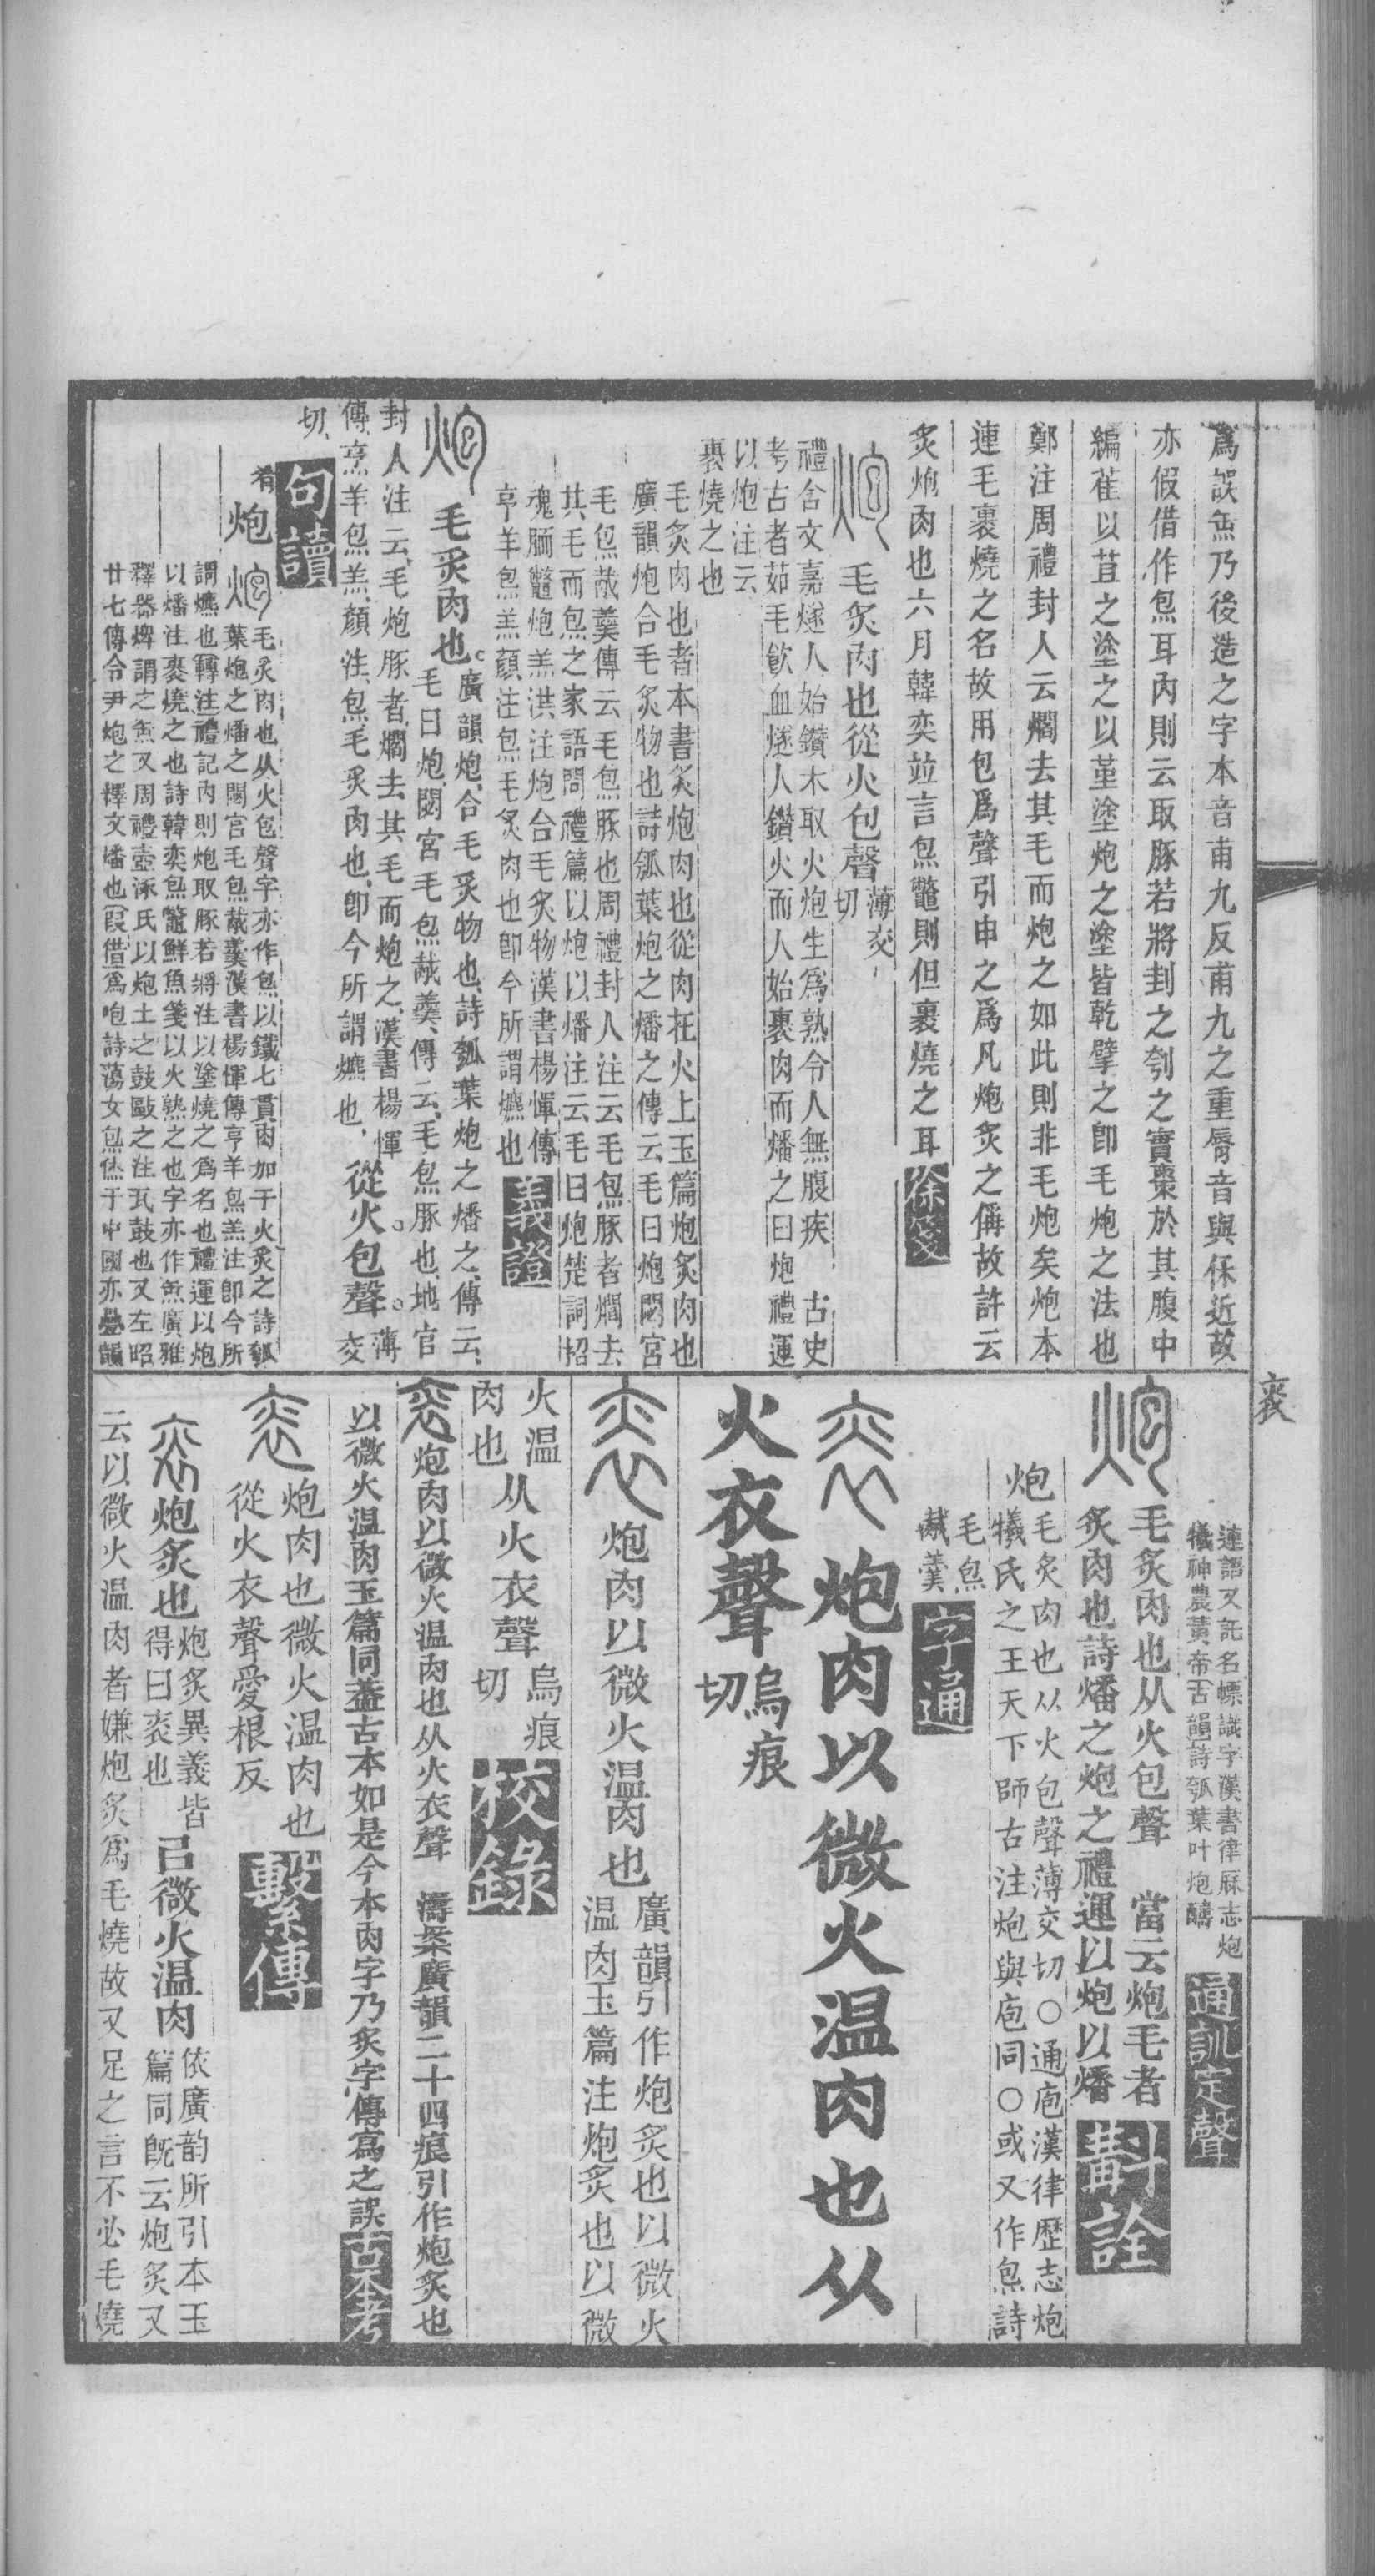 爲誤缹乃後造之字本音甫九反甫九之重脣音與缹近故
亦假借作炰耳内則云取豚若將刲之刳之實棗於其腹中
編萑以苴之塗之以堇塗炮之塗皆乾擘之卽毛炮之法也
鄭注周禮封人云爓去其毛而炮之如此則非毛炮矣炮本
連毛裹燒之名故用包爲聲引申之爲凡炮炙之偁故許云
炙炮肉也六月韓奕竝言炰鼈則但裹燒之耳徐箋
炮 毛炙肉也從火包聲薄交切
禮含文嘉燧人始鑽木取火炮生爲熟令人無腹疾 古史
考古者茹毛飮血燧人鑽火而人始裹肉而燔之曰炮禮運
以炮注云
裹燒之也
毛炙肉也者本書炙炮肉也從肉在火上玉篇炮炙肉也
廣韻炮合毛炙物也詩瓠葉炮之燔之傳云毛曰炮閟宮
毛炰胾羹傳云毛炰豚也周禮封人注云毛炰豚者爓去
其毛而炰之家語問禮篇以炮以燔注云毛曰炮楚詞招
魂胹鼈炮羔洪注炮合毛炙物漢書楊惲傳
亨羊炰羔顔注炰毛炙肉也卽今所謂爊也 義證
炮 毛炙肉也。廣韻炮、合毛炙物也、詩瓠葉炮之燔之、傳云、
毛曰炮閟宮毛炰胾羹、傳云、毛炰豚也、地官
封人注云、毛炮豚者、爓去其毛而炮之、漢書楊惲
傳、烹羊炰羔、顔注、炰毛炙肉也、卽今所謂爊也、從火包聲。薄交
切、句讀
肴 炮 炮 毛炙肉也从火包聲字亦作炰以鐵七貫肉加于火炙之詩瓠
葉炮之燔之閟宮毛炰胾羹漢書楊惲傳亨羊炰羔注卽今所
謂爊也轉注禮記内則炮取豚若將注以塗燒之爲名也禮運以炮
以燔注裹燒之也詩韓奕炰鼈鮮魚箋以火熟之也字亦作缹廣雅
釋器焷謂之缹又周禮壺涿氏以炮土之鼓敺之注瓦鼓也又左昭
廿七傳令尹炮之釋文燔也叚借爲咆詩蕩女炰烋于中國亦疊韻
連語又託名幖識字漢書律厤志炮
犧神農黃帝古韻詩瓠葉叶炮醻 通訓定聲
炮 毛炙肉也从火包聲 當云炮毛者
炙肉也詩燔之炮之禮運以炮以燔 斠詮
炮 毛炙肉也从火包聲薄交切○通庖漢律歷志炮
犧氏之王天下師古注炮與庖同○或又作炰詩
毛炰
胾羹 字通
衮 炮肉以微火温肉也从
火衣聲烏痕切
炮肉以微火温肉也 廣韻引作炮炙也以微火
温肉玉篇注炮炙也以微
火温
肉也 从火衣聲烏痕切 校錄
炮肉以微火温肉也从火衣聲 濤案廣韻二十四痕引作炮炙也
以微火温肉玉篇同蓋古本如是今本肉字乃炙字傳寫之誤 古本考
炮肉也微火温肉也
從火衣聲愛根反 繫傳
炮炙也炮炙異義皆得曰衮也㠯微火温肉依廣韵所引本玉篇同旣云炮炙又
云以微火温肉者嫌炮炙爲毛燒故又足之言不必毛燒